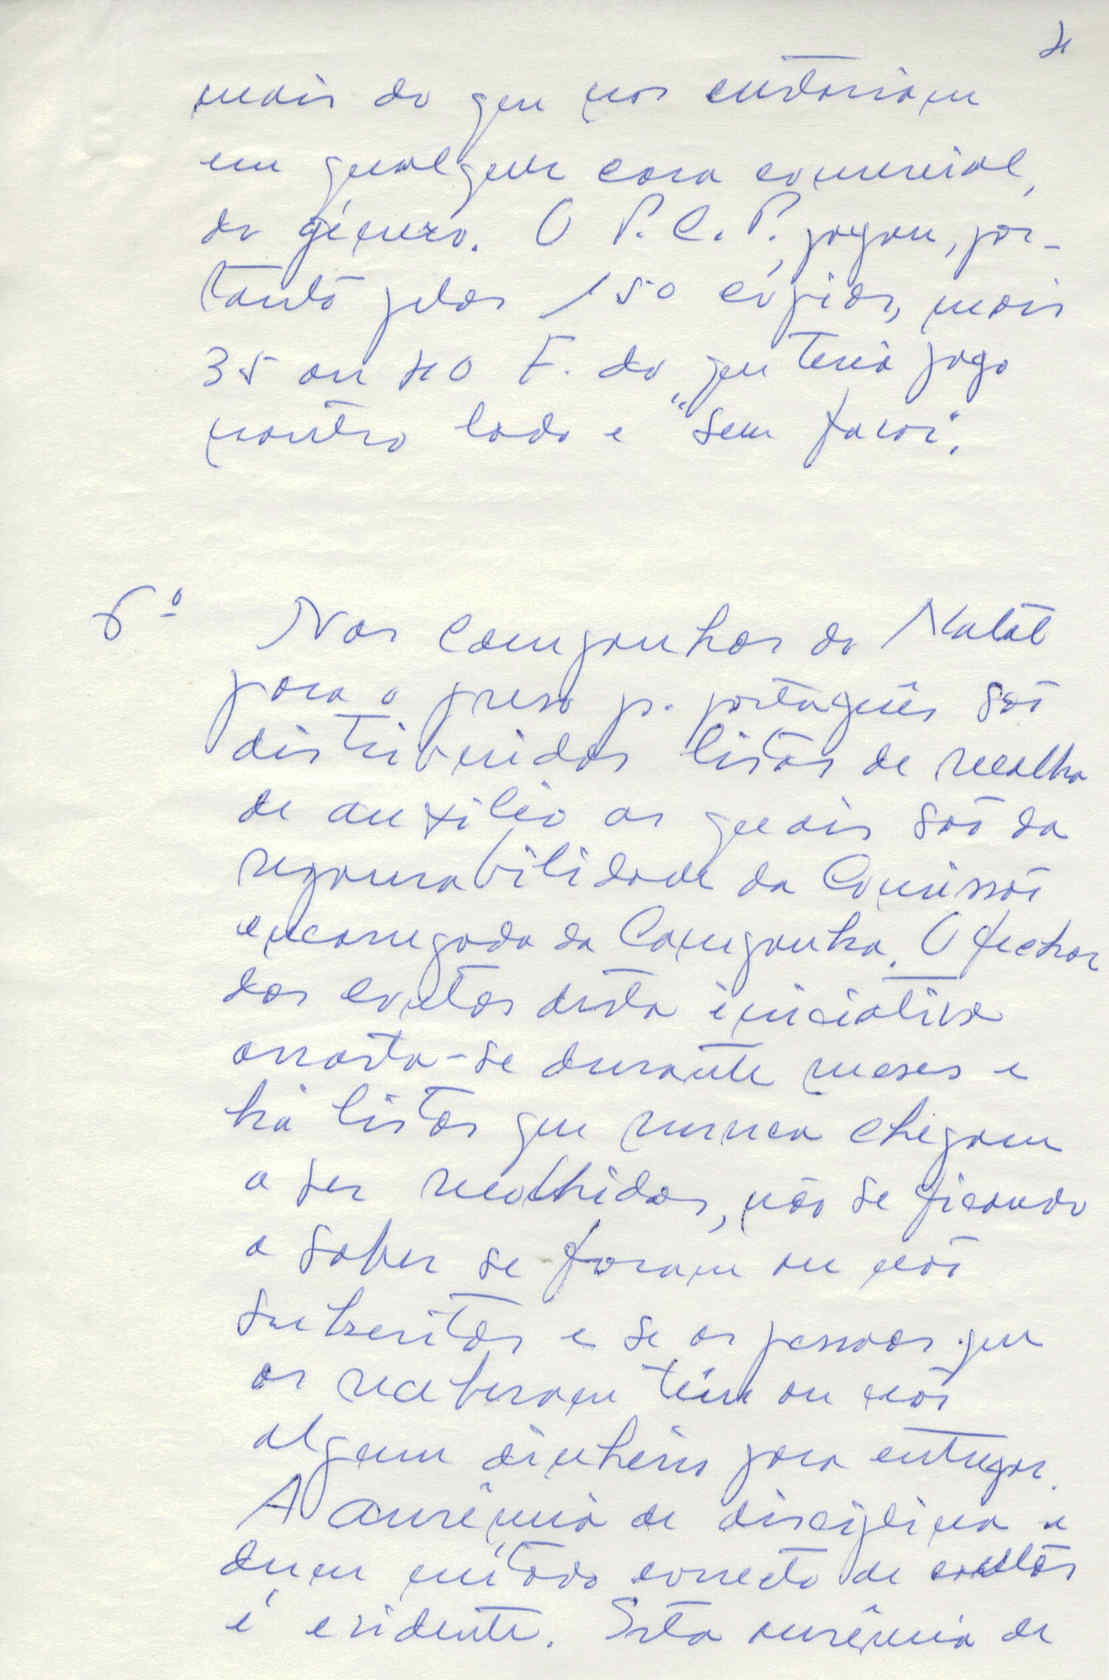 4
mais do que nos custariam
em qualquer casa comercial,
do género. O P.C.P. pagou, por-
tanto pelas 150 cópias, mais
35 ou 40 F. do que teria pago
noutro lado e "sem favor".
6º Nas campanhas do Natal
para o preso p. português são
distribuidas listas de recolha
de auxílio as quais são da
responsabilidade da Comissão
encarregada da Campanha. O fechar
das contas desta iniciativa
arrasta-se durante meses e
há listas que nunca chegam
a ser recolhidas, não se ficando
a saber se foram ou não
subscritas e se as pessoas que
as receberam têm ou não
algum dinheiro para entregar.
A ausência de disciplina e
dum método correcto de contas
é evidente. Esta ausência de